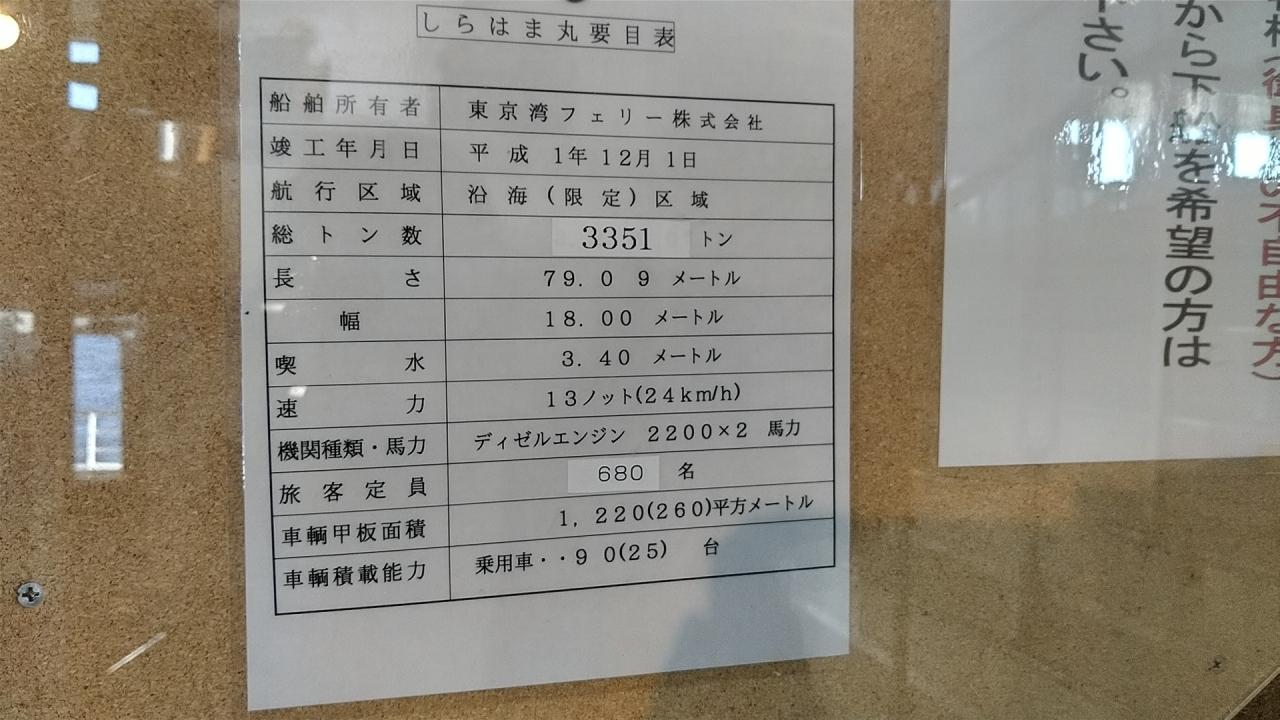 しらはま丸要目表
船舶所有者 東京湾フェリー株式会社
竣工年月日 平成 1年12月 1日
航行区域 沿海(限定)区域
総トン数 3351 トン
長さ 79.09 メートル
幅 18.00 メートル
喫水 3.40 メートル
速力 13ノット(24km/h)
機関種類・馬力 ディゼルエンジン 2200×2 馬力
旅客定員 680 名
車輌甲板面積 1,220(260)平方メートル
車輌積載能力 乗用車・・90(25) 台
の不自由な方)
から下船を希望の方は
さい。